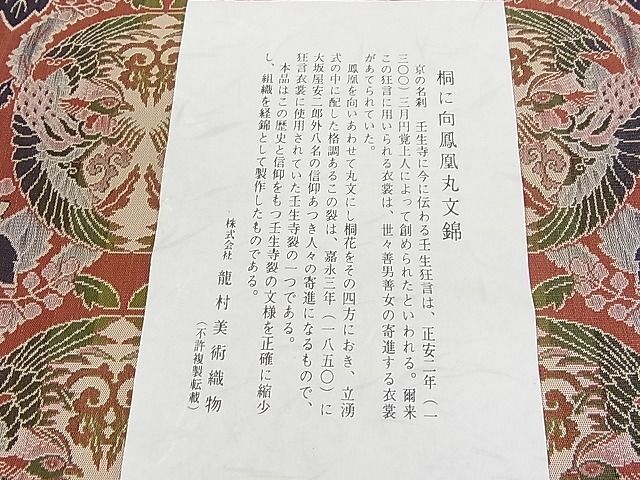 桐に向鳳凰丸文錦
京の名刹　壬生寺に今に伝わる壬生狂言は、正安二年（一
三〇〇）三月円覚上人によって創められたといわれる。爾来
この狂言に用いられる衣裳は、世々善男善女の寄進する衣裳
があてられていた。
鳳凰を向いあわせて丸文にし桐花をその四方におき、立湧
式の中に配した格調あるこの裂は、嘉永三年（一八五〇）に
大坂屋安二郎外八名の信仰あつき人々の寄進になるもので、
狂言衣裳に使用されていた壬生寺裂の一つである。
本品はこの歴史と信仰をもつ壬生寺裂の文様を正確に縮少
し、組織を経錦として製作したものである。
株式会社　龍村美術織物
（不許複製転載）